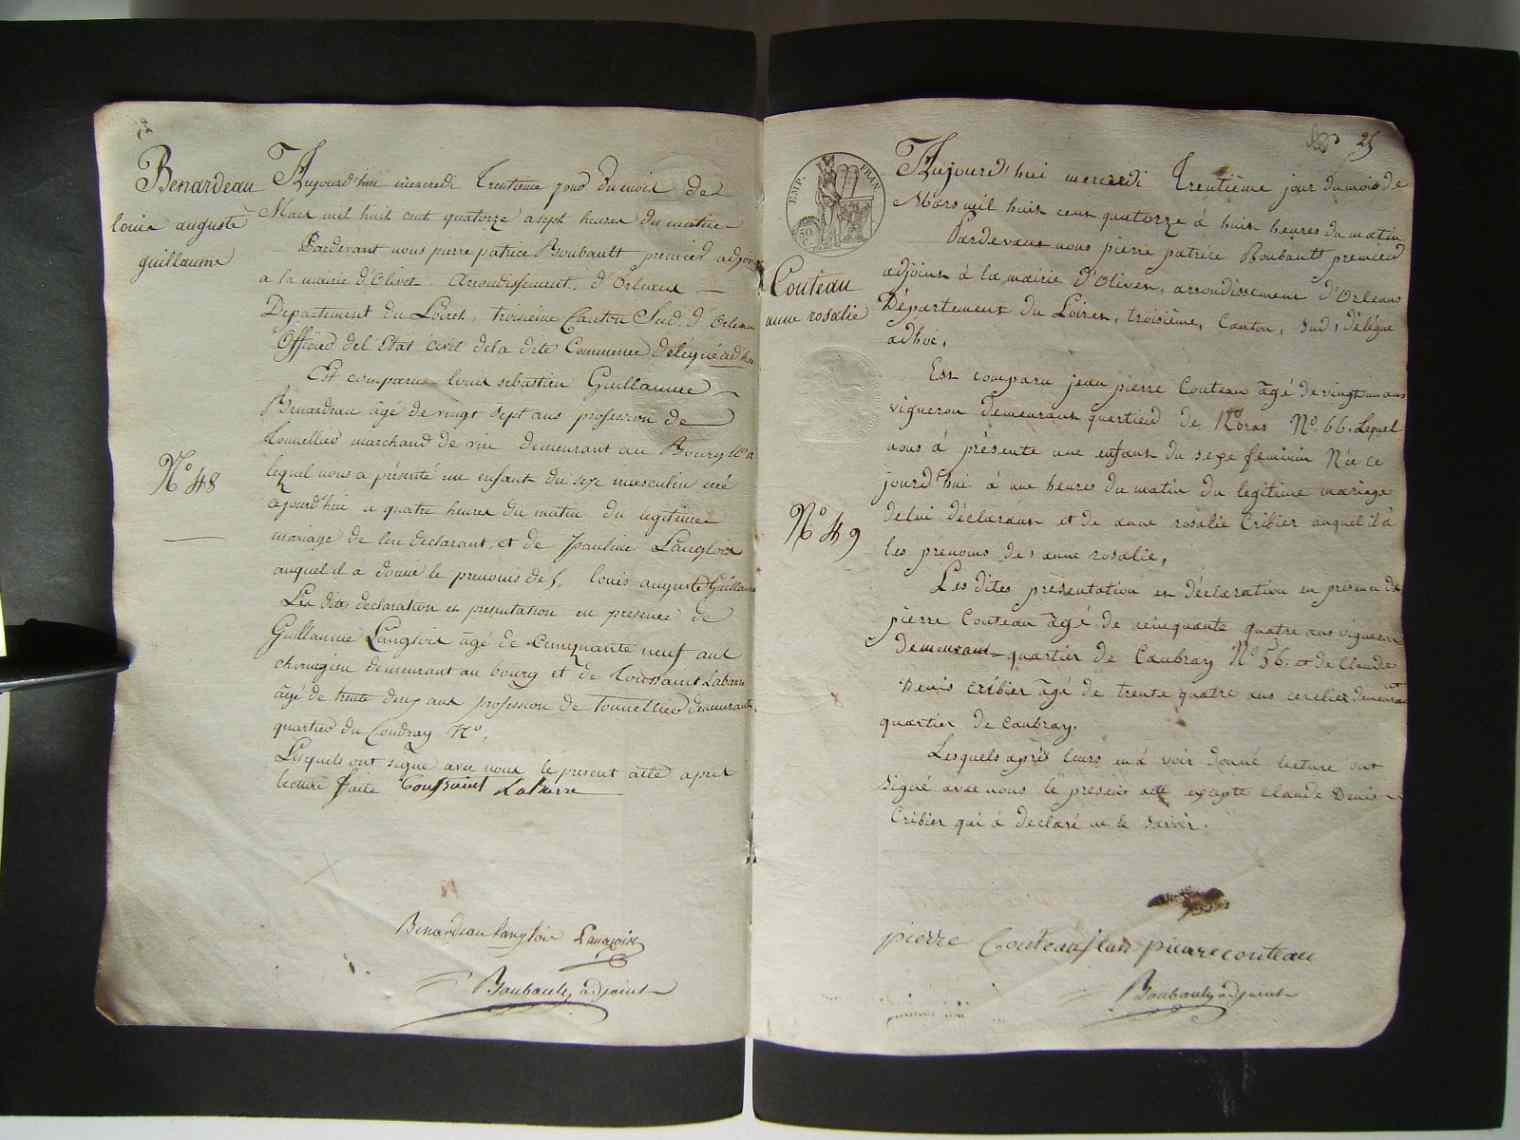 Benardeau
louis auguste
guillaume
N° 48
Aujourd'hui mercredi Trentieme jour du mois de
Mars mil huit cent quatorze a sept heures du matin
Pardevant nous pierre patrice Boubault premier adjoint
a la mairie d'Olivet arrondissement d'Orleans
Departement du Loiret, troisieme Canton Sud d'Orleans
Officier del Etat civil dela dite Commune délégué ad hoc
Est comparu louis sebastien Guillaume
Benardeau âgé de vingt sept ans profession de
Tonnellier marchand de vin demeurant au Bourg N°
lequel nous a présenté un enfant du sexe masculin né
aujourd'hui a quatre heures du matin du legitime
mariage de lui declarant, et de Pauline Langlois
auquel il a donné le prenoms de louis auguste Guillaume
Les dites declaration et presentation en presence de
Guillaume Langlois âgé de Cinquante neuf ans
chirurgien demeurant au bourg et de Toussaint Labarre
âgé de trente deux ans profession de Tonnellier demeurant
quartier du Coudray N°,
Lesquels ont signé avec nous le present acte apres
lecture faite Toussaint Labarre
Benardeau langlois Langlois
Boubault, adjoint
25
EMP. FRAN.
Couteau
anne rosalie
N° 49
Aujourd'hui mercredi Trentième jour du mois de
Mars mil huit cent quatorze à huit heures du matin
Pardevant nous pierre patrice Boubault premier
adjoint à la mairie d'Olivet, arrondissement d'Orleans
Département du Loiret, troisième, Canton, sud, délégué
adhoc,
Est comparu jean pierre Couteau âgé de vingt un ans
vigneron demeurant quartier de N° 66. Lequel
nous à présenté une enfant du sexe feminin Née ce
jourd'hui à une heures du matin du legitime mariage
de lui déclarant et de anne rosalie Cribier auquel il à
les prénoms de anne rosalie,
Les dites présentation et déclaration en presence de
pierre Couteau âgé de cinquante quatre ans vigneron
demeurant quartier de Caubray N° 56. et de Claude
Denis Cribier âgé de trente quatre ans cerclier demeurant
quartier de Caubray.
Lesquels après leurs en à voir donné lecture ont
signé avec nous le présent acte excepté Claude Denis
Cribier qui à déclaré ne le savoir.
pierre Couteau jean pierre couteau
Boubault, adjoint